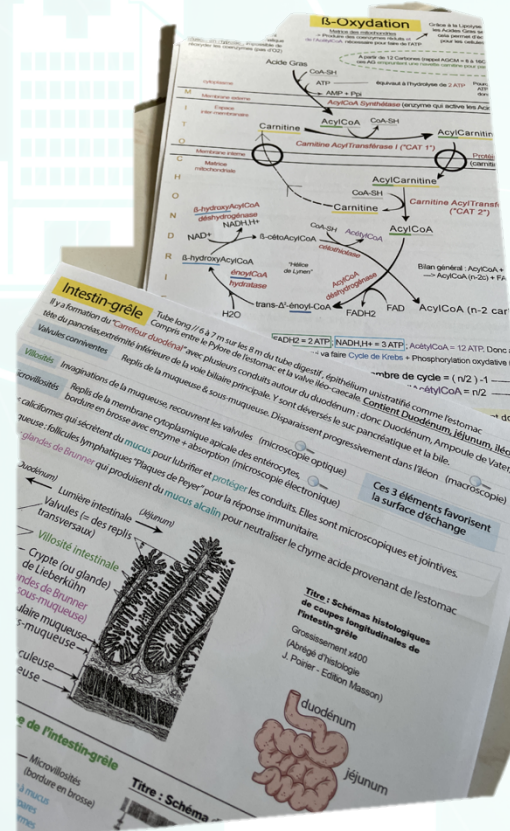 ß-Oxydation
Grâce à la Lipolyse
les Acides Gras
cela permet d'
pour les cellules
Matrice des mitochondries
+ Produire des coenzymes réduits
de l'AcétylCoA, nécessaires pour faire de l'ATP
impossible de
réoxyder les coenzymes (pas d'O2)
A partir de 12 Carbones (rappel AGCM = 6 à
ces AG empruntent une navette carnitine pour
Acide Gras
CoA-SH
ATP
équivaut à l'hydrolyse de 2 ATP
AMP + Ppi
cytoplasme
Membrane externe
AcylCoA Synthétase (enzyme qui active les
Espace
inter-membranaire
AcylCoA
CoA-SH
Carnitine
AcylCarnitin
Carnitine AcylTransférase I ("CAT 1")
Membrane interne
Matrice
mitochondriale
Proté
(carniti
M
I
T
O
C
H
O
N
D
R
I
E
AcylCarnitine
CoA-SH
Carnitine AcylTransf
("CAT 2")
Carnitine
AcylCoA
ß-hydroxyAcylCoA
déshydrogénase
NADH,H+
NAD+
ß-cétoAcylCoA
CoA-SH
AcétylCoA
cétothiolase
ß-hydroxyAcylCoA
"Hélice
de Lynen"
énoylCoA
hydratase
AcylCoA
déshydrogénase
Bilan général : AcylCoA +
—> AcylCoA (n-2c) + FA
H2O
trans-Δ²-énoyl-CoA
FADH2
FAD
AcylCoA (n-2 car
FADH2 = 2 ATP; NADH,H+ = 3 ATP; AcétylCoA = 12 ATP. Donc
va faire Cycle de Krebs + Phosphorylation oxydative
mbre de cycle = ( n/2 ) -1
AcétylCoA = n/2
Intestin-grêle
Tube long // 6 à 7 m sur les 8 m du tube digestif, épithélium unistratifié comme l'estomac
Compris entre le Pylore de l'estomac et la valve iléo-caecale. Contient Duodénum, jéjunum, iléo
Il y a formation du "Carrefour duodénal" avec plusieurs conduits autour du duodénum : donc Duodénum, Ampoule de Vater,
tête du pancréas, extrémité inférieure de la voie biliaire principale. Y sont déversés le suc pancréatique et la bile.
Valvules conniventes
Replis de la muqueuse & sous-muqueuse. Disparaissent progressivement dans l'iléon (macroscopie)
Villosités
Invaginations de la muqueuse, recouvrent les valvules (microscope optique)
icrovillosités
Replis de la membrane cytoplasmique apicale des entérocytes,
bordure en brosse avec enzyme + absorption (microscope électronique)
Ces 3 éléments favorisent
la surface d'échange
caliciformes qui sécrètent du mucus pour lubrifier et protéger les conduits. Elles sont microscopiques et jointives.
queuse : follicules lymphatiques "Plaques de Peyer" pour la réponse immunitaire.
glandes de Brunner qui produisent du mucus alcalin pour neutraliser le chyme acide provenant de l'estomac
Duodénum)
Lumière intestinale
(Jéjunum)
Valvules (= des replis
transversaux)
Villosité intestinale
Crypte (ou glande)
de Lieberkühn
ndes de Brunner
sous-muqueuse)
ulaire muqueuse
s-muqueuse
culeuse
euse
Titre : Schémas histologiques
de coupes longitudinales de
l'intestin-grêle
Grossissement x400
(Abrégé d'histologie
J. Poirier - Edition Masson)
duodénum
jéjunum
e de l'intestin-grêle
Microvillosités
(bordure en brosse)
à mucus
Titre : Schéma